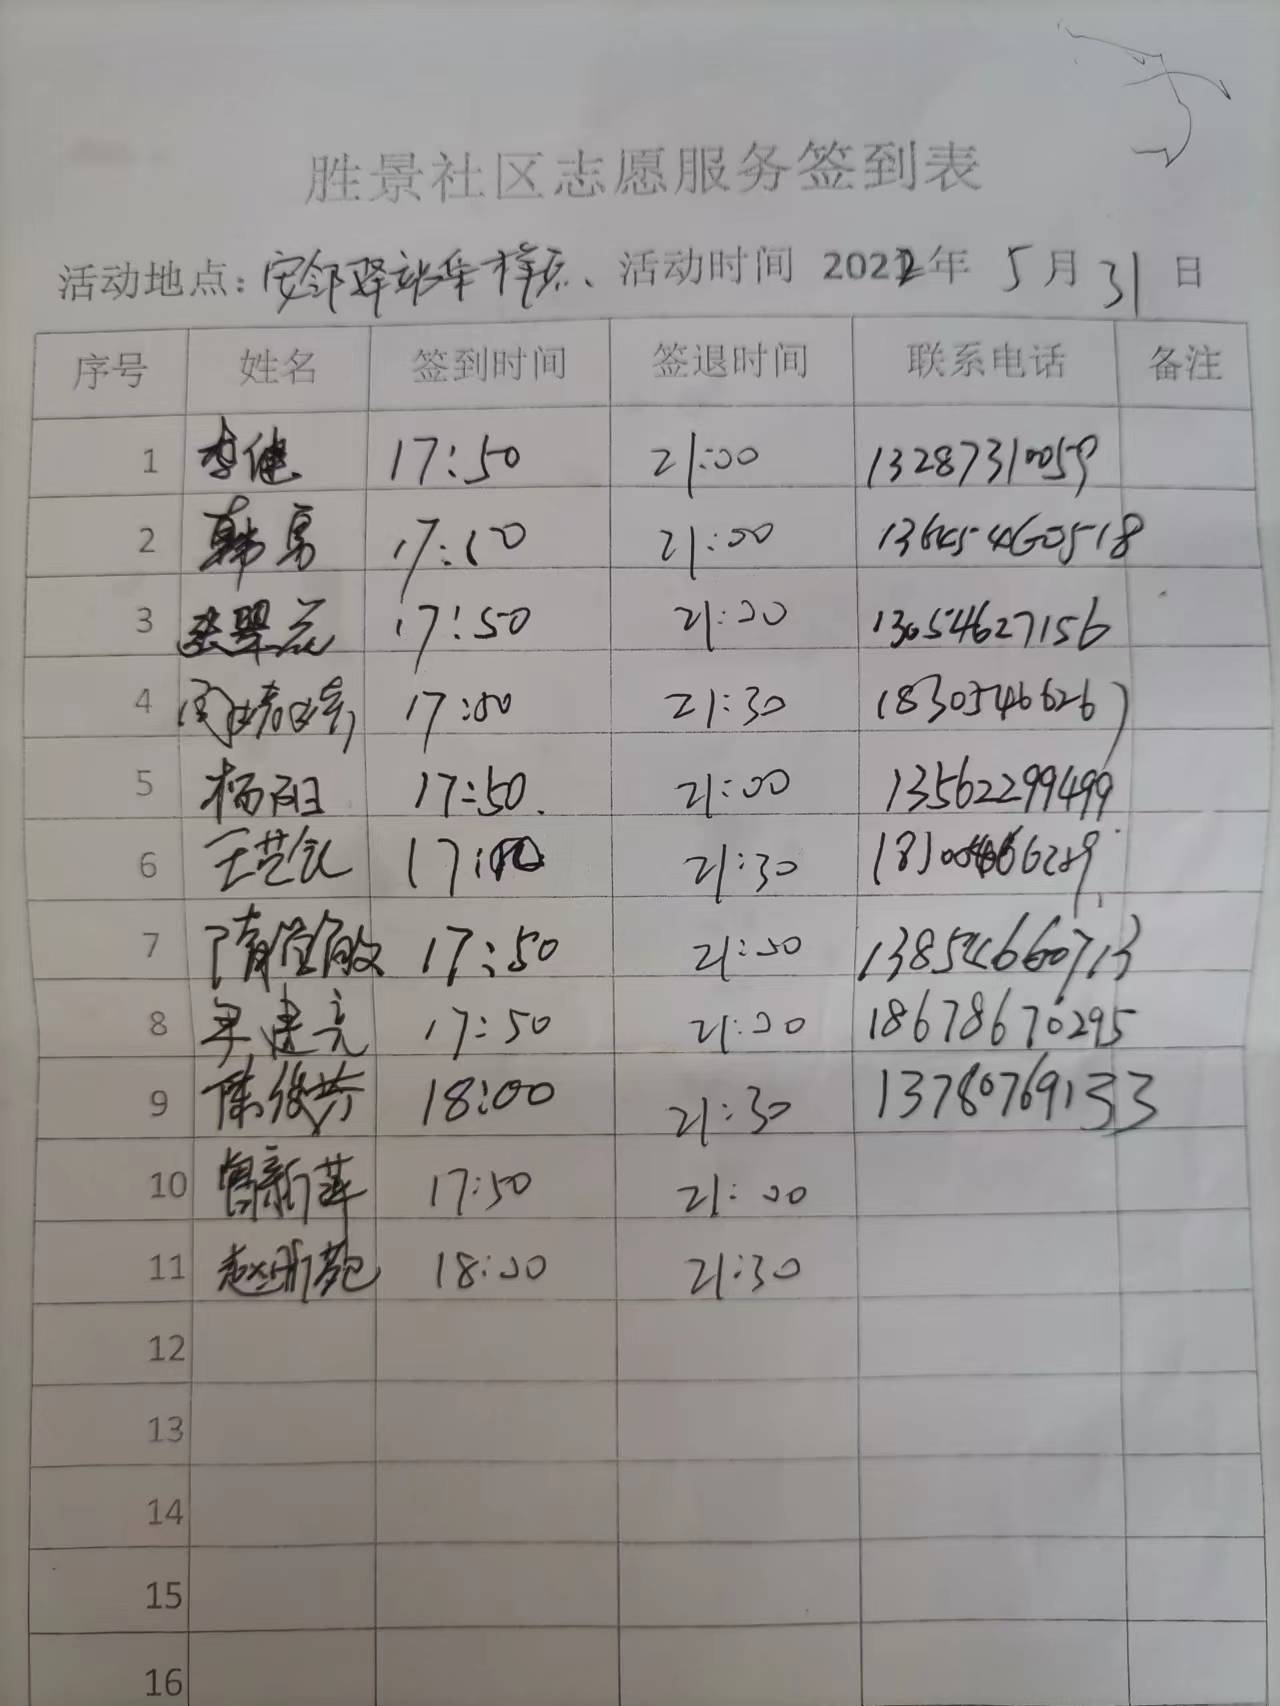 胜景社区志愿服务签到表
活动地点:安邻驿站 活动时间 2022年 5月31日
序号 姓名 签到时间 签退时间 联系电话 备注
1 李健 17:50 21:00 13287310059
2 韩勇 17:10 21:00 13645460518
3 翠兰 17:50 21:00 13054627156
4 17:00 21:30 18305466267
5 杨阳 17:50. 21:00 13562299499
6 王芸 21:30
7 隋 敏 17:50 21:00 13854660713
8 建亮 17:50 21:00 18678670295
9 陈俊 18:00 21:30 13780769133
10 曾新莲 17:50 21:00
11 赵 18:00 21:30
12
13
14
15
16